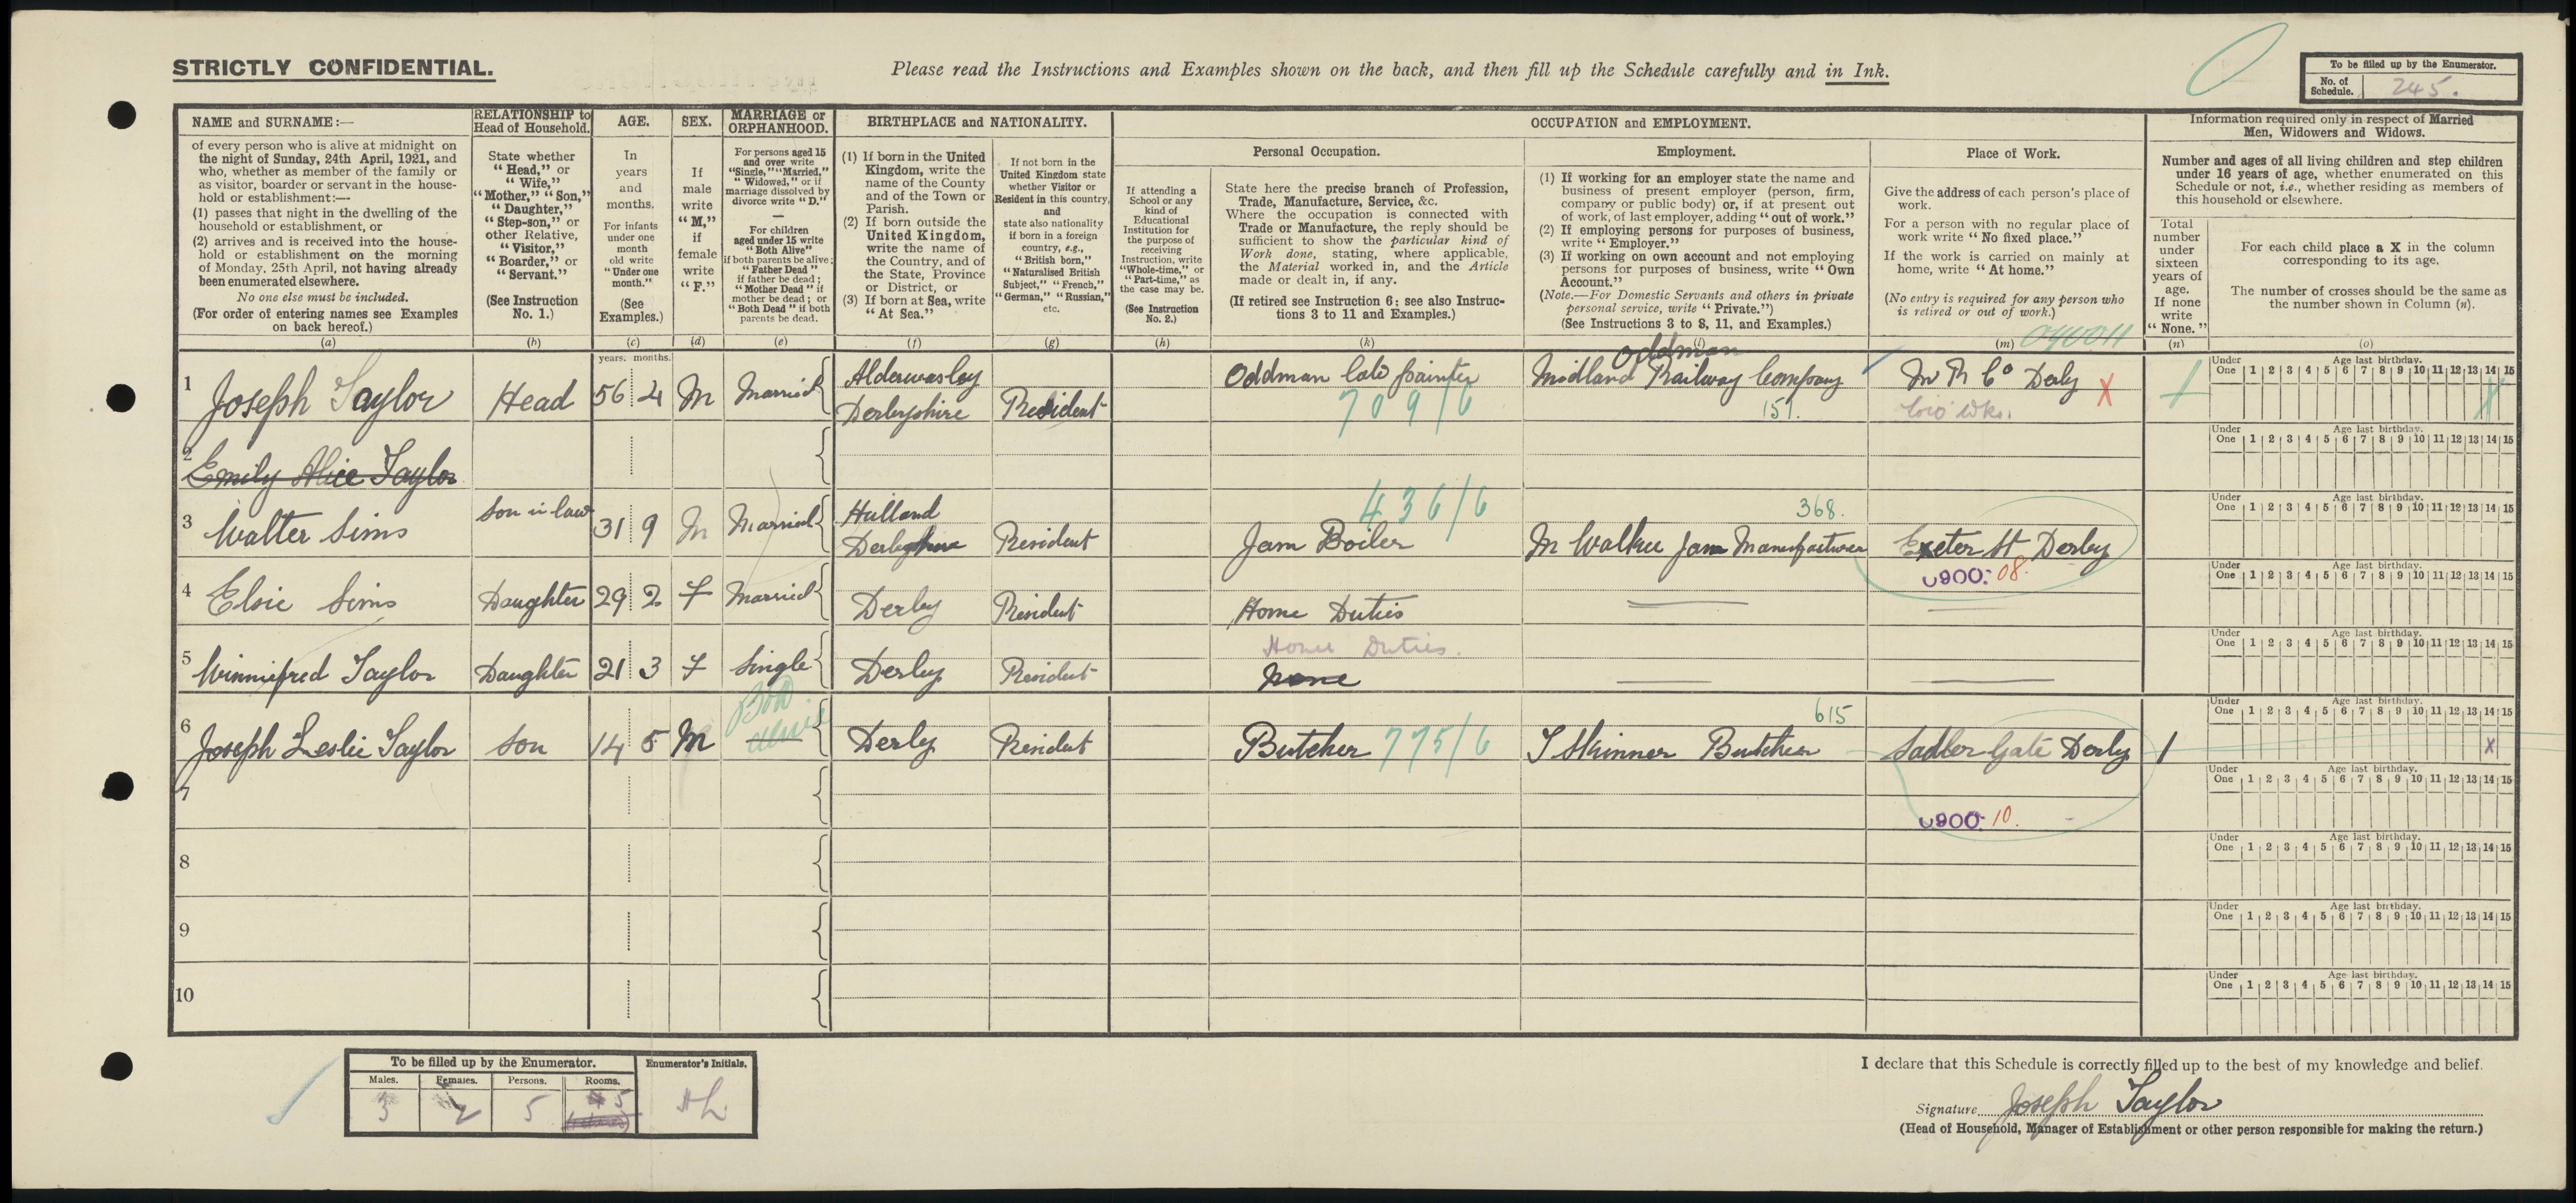 STRICTLY CONFIDENTIAL.
Please read the Instructions and Examples shown on the back, and then fill up the Schedule carefully and in Ink.
To be filled up by the Enumerator.
No. of Schedule. 245.
NAME and SURNAME:—
of every person who is alive at midnight on
the night of Sunday, 24th April, 1921, and
who, whether as member of the family or
as visitor, boarder or servant in the house-
hold or establishment:—
(1) passes that night in the dwelling of the
household or establishment, or
(2) arrives and is received into the house-
hold or establishment on the morning
of Monday, 25th April, not having already
been enumerated elsewhere.
No one else must be included.
(For order of entering names see Examples
on back hereof.)
(a)
RELATIONSHIP to
Head of Household.
State whether
"Head," or
"Wife,"
"Mother," "Son,"
"Daughter,"
"Step-son," or
other Relative,
"Visitor,"
"Boarder," or
"Servant."
(See Instruction
No. 1.)
(b)
AGE.
In
years
and
months.
For infants
under one
month
old write
"Under one
month."
(See
Examples.)
(c)
years. months.
SEX.
If
male
write
"M,"
if
female
write
"F."
(d)
MARRIAGE or
ORPHANHOOD.
For persons aged 15
and over write
"Single," "Married,"
"Widowed," or if
marriage dissolved by
divorce write "D."
For children
aged under 15 write
"Both Alive"
if both parents be alive;
"Father Dead"
if father be dead;
"Mother Dead" if
mother be dead; or
"Both Dead" if both
parents be dead.
(e)
BIRTHPLACE and NATIONALITY.
(1) If born in the United
Kingdom, write the
name of the County
and of the Town or
Parish.
(2) If born outside the
United Kingdom,
write the name of
the Country, and of
the State, Province
or District, or
(3) If born at Sea, write
"At Sea."
(f)
If not born in the
United Kingdom state
whether Visitor or
Resident in this country,
and
state also nationality
if born in a foreign
country, e.g.,
"British born,"
"Naturalised British
Subject," "French,"
"German," "Russian,"
etc.
(g)
OCCUPATION and EMPLOYMENT.
If attending a
School or any
kind of
Educational
Institution for
the purpose of
receiving
Instruction, write
"Whole-time," or
"Part-time," as
the case may be.
(See Instruction
No. 2.)
(h)
Personal Occupation.
State here the precise branch of Profession,
Trade, Manufacture, Service, &c.
Where the occupation is connected with
Trade or Manufacture, the reply should be
sufficient to show the particular kind of
Work done, stating, where applicable,
the Material worked in, and the Article
made or dealt in, if any.
(If retired see Instruction 6; see also Instruc-
tions 3 to 11 and Examples.)
(k)
Employment.
(1) If working for an employer state the name and
business of present employer (person, firm,
company or public body) or, if at present out
of work, of last employer, adding "out of work."
(2) If employing persons for purposes of business,
write "Employer."
(3) If working on own account and not employing
persons for purposes of business, write "Own
Account."
(Note.—For Domestic Servants and others in private
personal service, write "Private.")
(See Instructions 3 to 8, 11, and Examples.)
(l)
Place of Work.
Give the address of each person's place of
work.
For a person with no regular place of
work write "No fixed place."
If the work is carried on mainly at
home, write "At home."
(No entry is required for any person who
is retired or out of work.)
(m)
Information required only in respect of Married
Men, Widowers and Widows.
Number and ages of all living children and step children
under 16 years of age, whether enumerated on this
Schedule or not, i.e., whether residing as members of
this household or elsewhere.
Total
number
under
sixteen
years of
age.
If none
write
"None."
(n)
For each child place a X in the column
corresponding to its age.
The number of crosses should be the same as
the number shown in Column (n).
(o)
Oddman
1 Joseph Taylor Head 56 4 M Married Alderwasley Derbyshire Resident Oddman late painter 709/6 Midland Railway Company 151. M R Co Derby X
Under One 1 2 3 4 5 6 7 8 9 10 11 12 13 14 15 Age last birthday. X
2 Emily Alice Taylor
Under One 1 2 3 4 5 6 7 8 9 10 11 12 13 14 15 Age last birthday.
3 Walter Sims Son in law 31 9 M Married Hulland Derbyshire Resident 436/6 Jam Boiler 368. M Walker Jam Manufacturer Exeter St Derby
U900. 08.
Under One 1 2 3 4 5 6 7 8 9 10 11 12 13 14 15 Age last birthday.
4 Elsie Sims Daughter 29 2 F Married Derby Resident Home Duties
Under One 1 2 3 4 5 6 7 8 9 10 11 12 13 14 15 Age last birthday.
Home Duties.
5 Winnifred Taylor Daughter 21 3 F Single Derby Resident None
Under One 1 2 3 4 5 6 7 8 9 10 11 12 13 14 15 Age last birthday.
6 Joseph Leslie Taylor Son 14 5 M Both Alive Derby Resident Butcher 775/6 615 T Skinner Butcher Sadler Gate Derby 1
Under One 1 2 3 4 5 6 7 8 9 10 11 12 13 14 15 Age last birthday. X
U900. 10.
7
Under One 1 2 3 4 5 6 7 8 9 10 11 12 13 14 15 Age last birthday.
8
Under One 1 2 3 4 5 6 7 8 9 10 11 12 13 14 15 Age last birthday.
9
Under One 1 2 3 4 5 6 7 8 9 10 11 12 13 14 15 Age last birthday.
10
Under One 1 2 3 4 5 6 7 8 9 10 11 12 13 14 15 Age last birthday.
To be filled up by the Enumerator.
Males. Females. Persons. Rooms.
3 2 5 5
Enumerator's Initials.
I declare that this Schedule is correctly filled up to the best of my knowledge and belief.
Signature Joseph Taylor
(Head of Household, Manager of Establishment or other person responsible for making the return.)